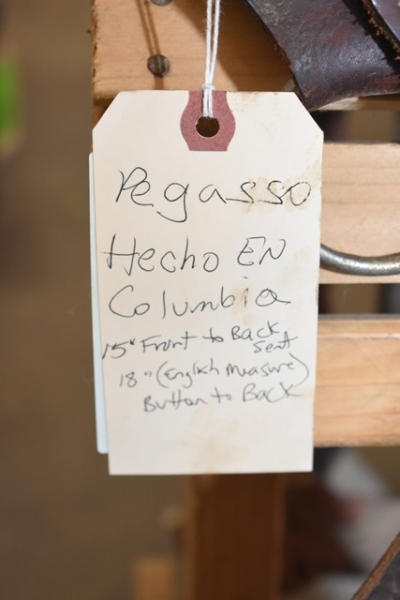 Pegasso
Hecho EN
Columbia
15" Front to Back
Seat
18" (English Measure)
Button to Back